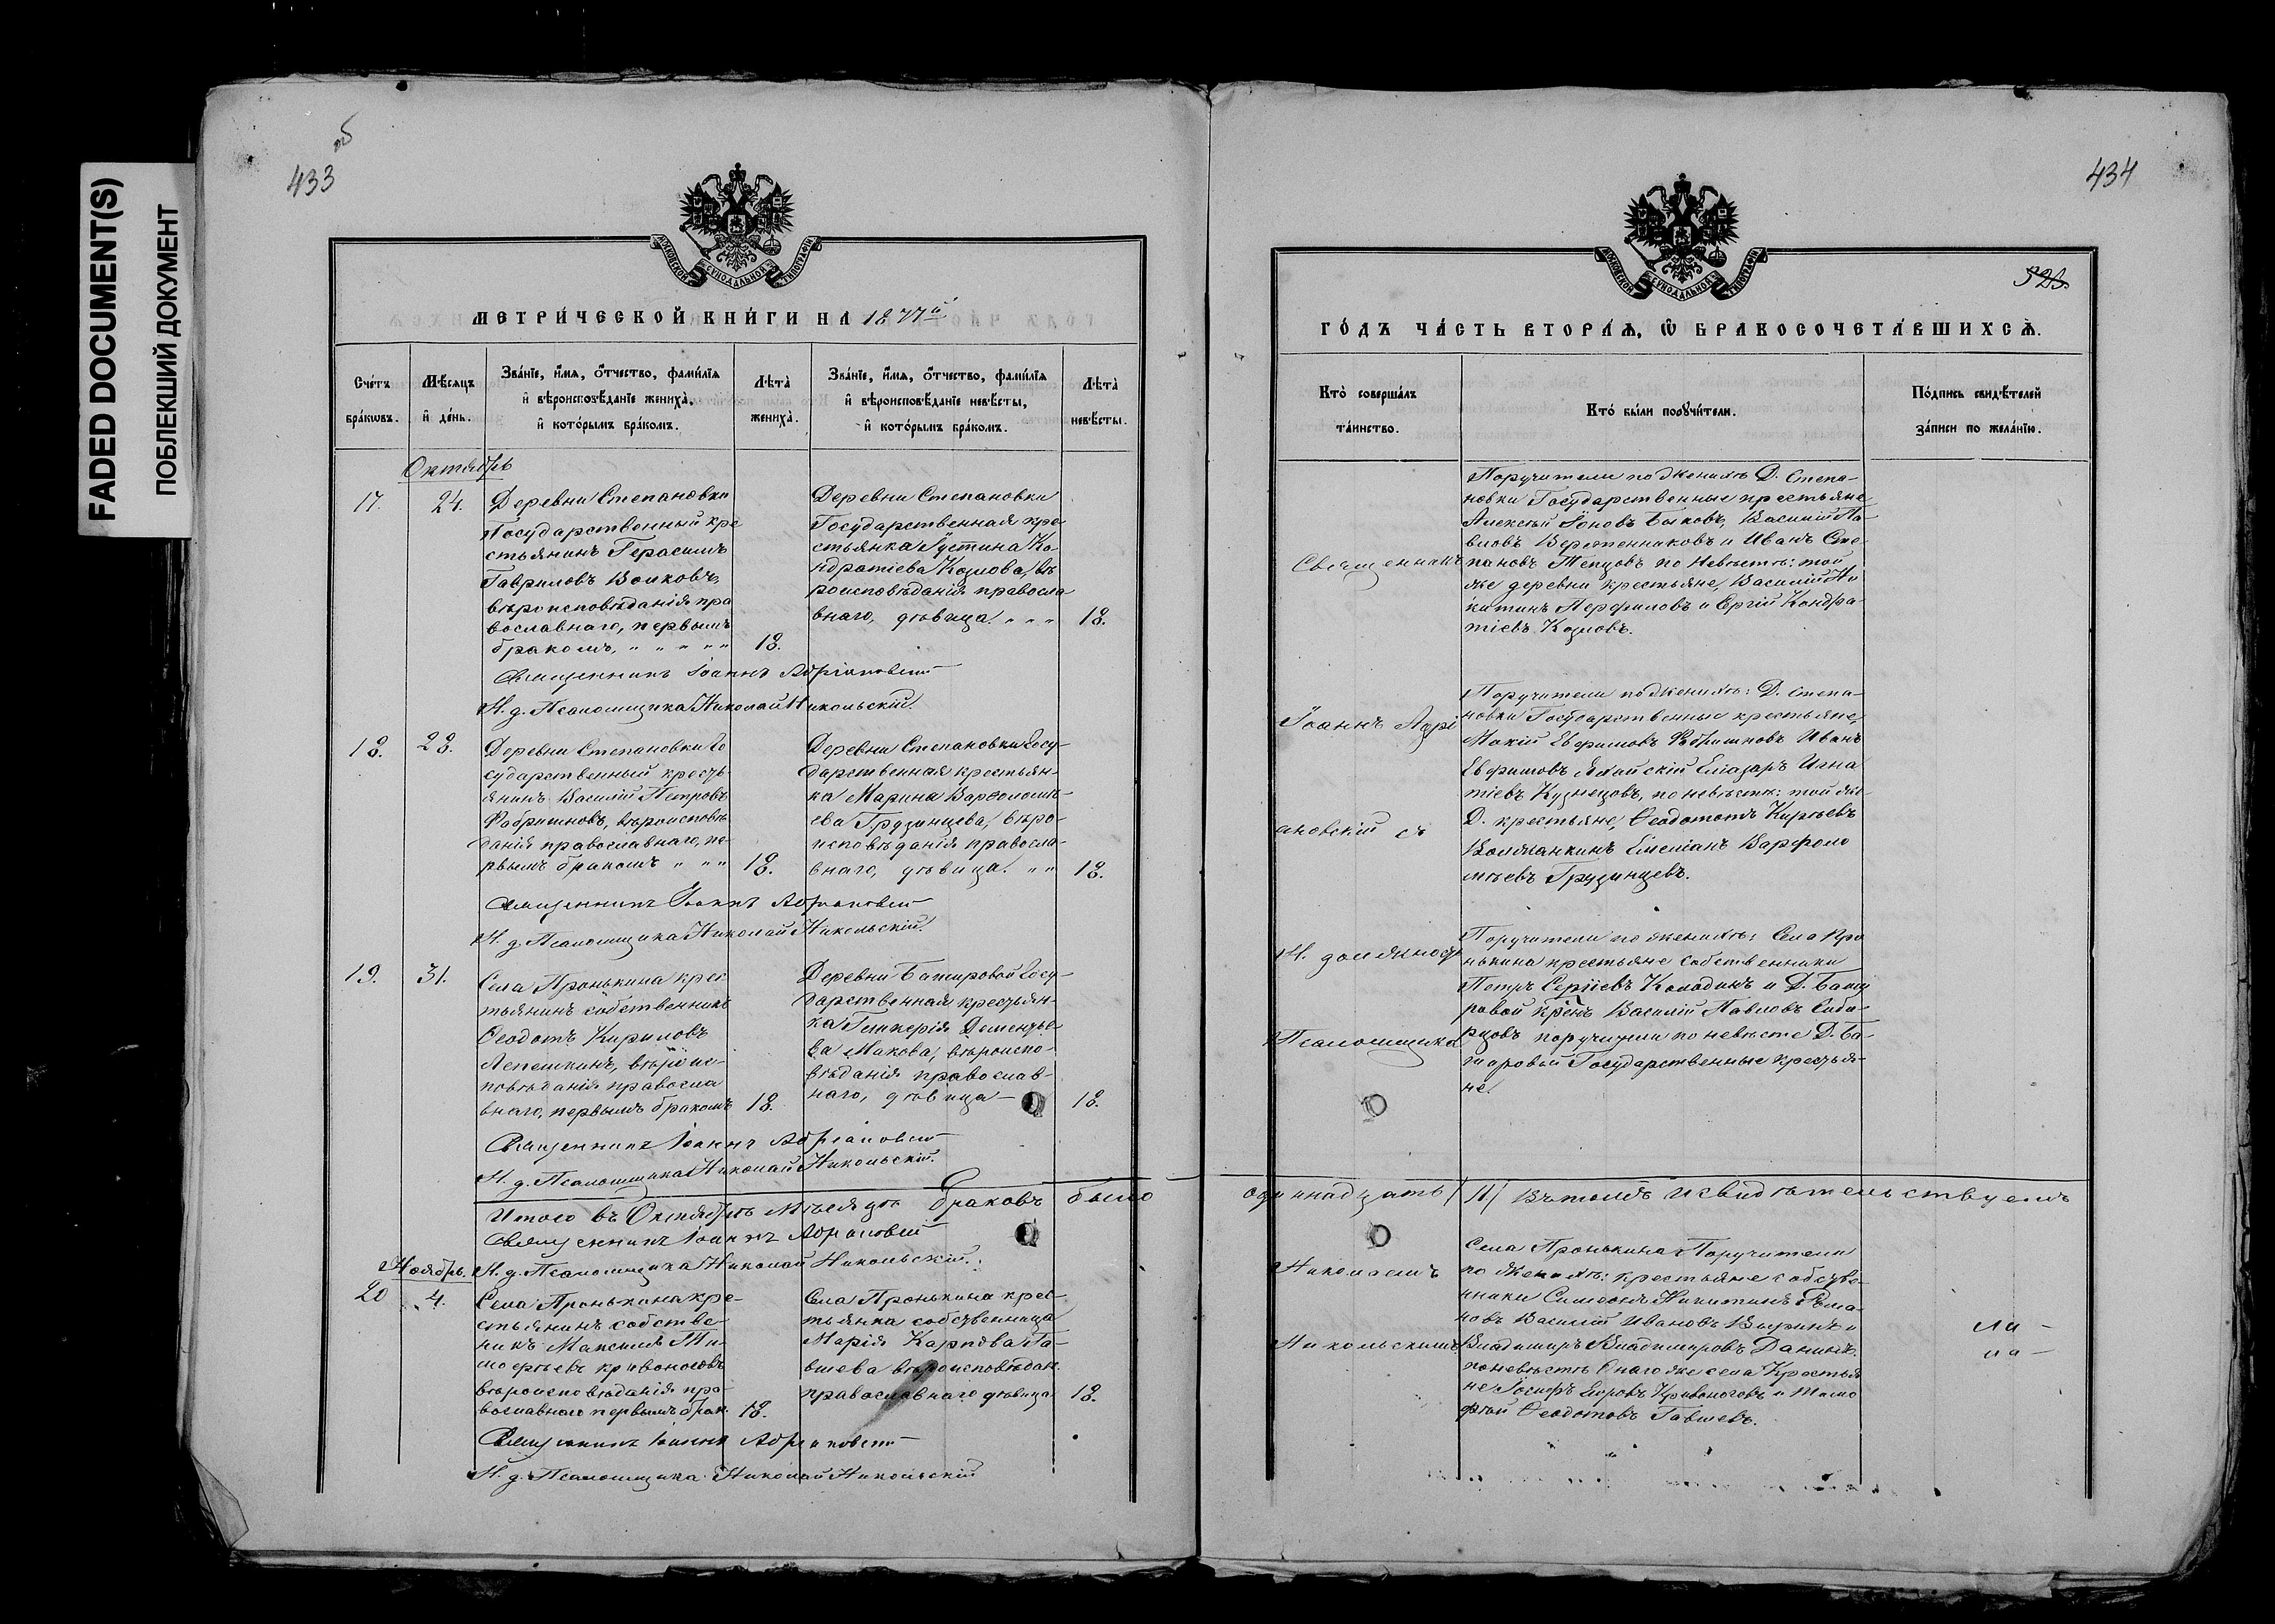 FADED DOCUMENT(S)
ПОБЛЕКШИЙ ДОКУМЕНТ
433 об
МОСКОВСКОЙ СѴНОДАЛЬНОЙ ТИПОГРАФІИ
МЕТРИ́ЧЕСКОЙ КНИ́ГИ НА 1877й
Сче́тъ бра́кωвъ.
Мѣ́сяцъ и҆ де́нь.
Зва́нїе, и҆́мѧ, ѻ҆́тчество, фами́лїѧ
и҆ вѣроисповѣ́данїе жениха̀,
и҆ кото́рымъ бра́комъ.
Лѣ́та жениха̀.
Зва́нїе, и҆́мѧ, ѻ҆́тчество, фами́лїѧ
и҆ вѣроисповѣ́данїе невѣ́сты,
и҆ кото́рымъ бра́комъ.
Лѣ́та невѣ́сты.
Октябрь
17.
24.
Деревни Степановки
Государственный кре
стьянинъ Герасимъ
Гавриловъ Волковъ,
вѣроисповѣданія пра
вославнаго, первымъ
бракомъ, " " " " "
18.
Деревни Степановки
Государственная кре-
стьянка Іустина Ко-
ндратіева Козлова, вѣ
роисповѣданія правосла
внаго, дѣвица. " " "
18.
Священникъ Іоаннъ Адріановскій
И. д. Псаломщика Николай Никольскій.
18.
28.
Деревни Степановки Го
сударственный кресть
янинъ Василій Петровъ
Фабришновъ, вѣроисповѣ
данія православнаго, пе-
рвымъ бракомъ " " "
18.
Деревни Степановки Госу-
дарственная крестьян-
ка Марина Варѳоломѣ-
ева Грузинцева, вѣро-
исповѣданія правосла-
внаго, дѣвица. " "
18.
Священникъ Іоаннъ Адріановскій
И. д. Псаломщика Николай Никольскій.
19.
31.
Села Пронькина крес
тьянинъ собственникъ
Ѳеодотъ Кириловъ
Лепешкинъ, вѣроис-
повѣданія правосла
внаго, первымъ бракомъ
18.
Деревни Башировой Госу-
дарственная крестьян-
ка Гликерія Дементье-
ва Макова, вѣроиспо-
вѣданія православ-
наго, дѣвица
18.
Священникъ Іоаннъ Адріановскій
И. д. Псаломщика Николай Никольскій.
Итого въ Октябрѣ мѣсяцѣ браковъ было
Священникъ Іоаннъ Адріановскій
Ноябрь.
И. д. Псаломщика Николай Никольскій.
20
4.
Села Пронькина кре-
стьянинъ собстве-
никъ Максимъ Ти-
моѳеевъ Кривоноговъ
вѣроисповѣданія пра-
вославнаго первымъ брак.
18.
Села Пронькина крес-
тьянка собственница
Марія Карпова Га-
вшева вѣроисповѣдан.
православнаго дѣвица
18.
Священникъ Іоаннъ Адріановскій
И. д. Псаломщика Николай Никольскій
434
МОСКОВСКОЙ СѴНОДАЛЬНОЙ ТИПОГРАФІИ
ГО́ДЪ ЧА́СТЬ ВТОРА́Ѧ, Ѽ БРАКОСОЧЕТА́ВШИХСѦ.
Кто̀ соверша́лъ та́инство.
Кто́ бы́ли порꙋчи́тели.
По́дпись свидѣ́телей за́писи по жела́нїю.
Поручители по женихѣ Д. Степа-
новки Государственные крестьяне
Алексѣй Іоновъ Быковъ, Василій Па-
вловъ Веретенниковъ и Иванъ Сте-
пановъ Тепцовъ по Невѣстѣ: той
же деревни крестьяне, Василій Ни
китинъ Перфиловъ и Сергій Кондра-
тіевъ Козловъ.
Священникъ
Поручители по женихѣ: Д. Степа-
новки Государственные крестьяне,
Мокій Евфимовъ Фабришновъ Иванъ
Евфимовъ Елазаръ Игна
тіевъ Кузнецовъ, по невѣстѣ: той же
Д. крестьяне, Ѳеодотъ Киріевъ
Емеліанъ Варфоло
мѣевъ Грузинцевъ.
Іоаннъ Адрі
ановскій съ
Поручители по женихѣ: Села Про
нькина крестьяне собственники
Петръ Сергіевъ Колодинъ и Д. Баши
ровой крен. Василій Павловъ Сиби-
рцовъ поручители по невѣсте Д. Ба-
шировой Государственные крестья-
не.
И. должность
Псаломщика
одиннадцать /11/ Въ томъ и свидѣтельствуемъ
Села Пронькина Поручители
по женихѣ: крестьяне собстве-
нники Симеонъ Никитинъ Рома-
новъ Василій Ивановъ и
Владимиръ Владимировъ
по невѣстѣ Онаго же села Крестья
не Іосифъ Егоровъ Кривоноговъ и Тимо
фей Ѳеодотовъ Гавшевъ.
Николаемъ
Никольскимъ